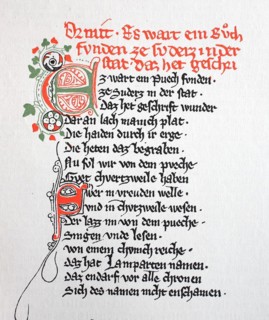 Ornit · Es wart ein Bůch
funden ze suders in der
stat daz het geschri
Ez wart ein puech funden ·
ze Suders in der stat ·
Daz het geschrift wunder
Daran lach manich plat ·
Die haiden durch ir erge ·
Die heten daz begraben ·
Nu sol wir von dem pueche ·
Guet churtzweile haben
Swer in vreuden welle ·
und in churtzweile wesen ·
Der lazz im von dem pueche ·
Singen unde lesen ·
Von einem chunich reiche ·
daz hat Lamparten namen ·
Daz endarf vor alle chronen
Sich des namen nicht enschamen ·